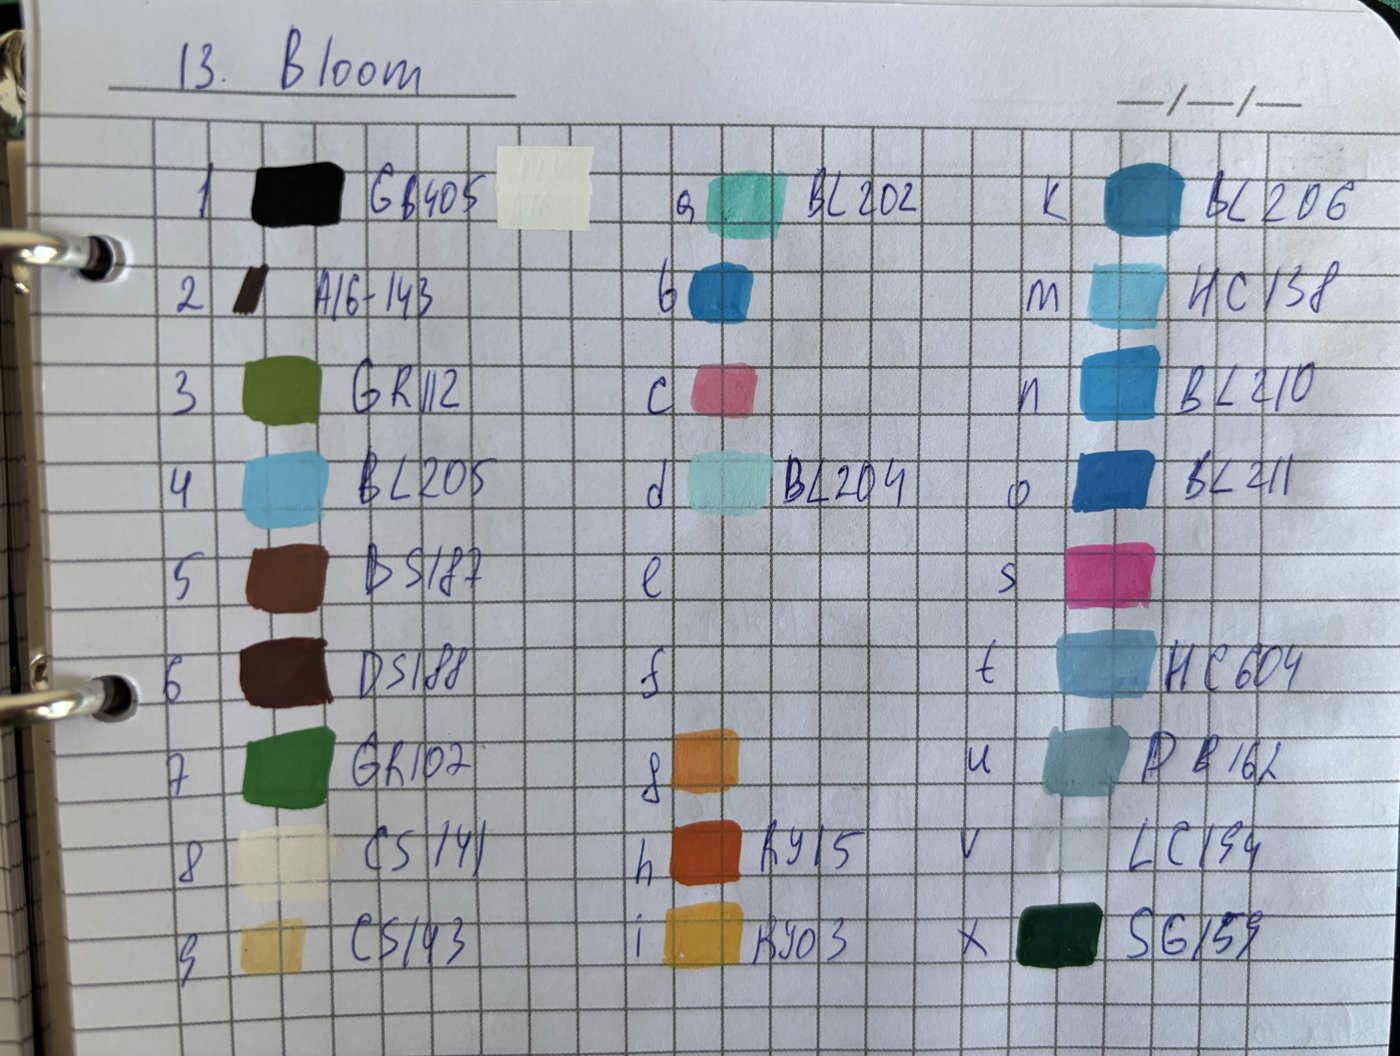 13. Bloom
__/__/__
1 GB405
2 A16-143
3 GR112
4 BL205
5 DS187
6 DS188
7 GR107
8 CS141
9 CS143
a BL202
b
c
d BL204
e
f
g
h RY15
i RY03
k BL206
m HC138
n BL210
o BL211
s
t HC604
u PB162
v LC194
x SG159